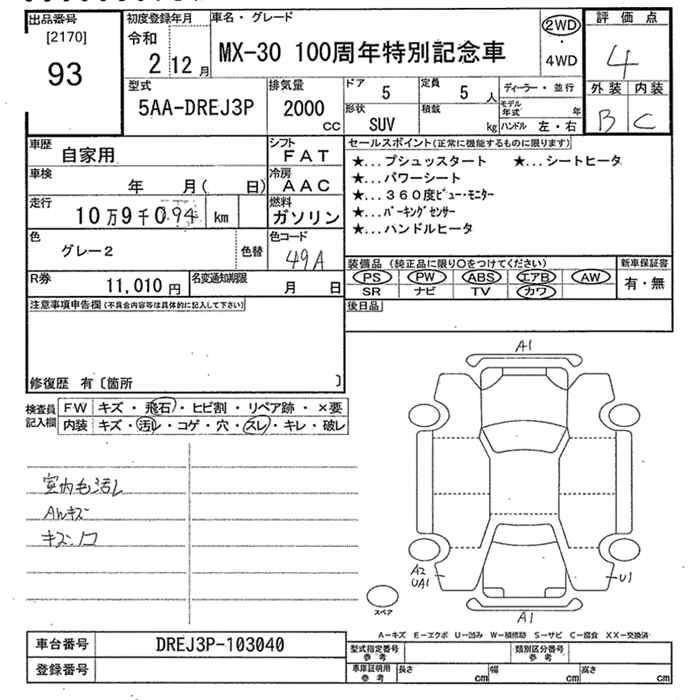 出品番号
[2170]
93
初度登録年月
令和
2 12 月
車名・グレード
MX-30 100周年特別記念車
2WD
・
4WD
評価点
4
外装 内装
B C
型式
5AA-DREJ3P
排気量
2000
CC
ドア 5
定員 5 人
形状 SUV
積載 kg
ディーラー・並行
モデル年式 年
ハンドル 左・右
車歴
自家用
シフト
FAT
車検
年 月( 日)
冷房
AAC
走行
10万9千094 km
燃料
ガソリン
色
グレー2
色替
色コード
49A
R券
11,010 円
名変通知期限
月 日
セールスポイント(正常に機能するものに限ります)
★...プシュッスタート ★...シートヒータ
★...パワーシート
★...360度ビュ-モニター
★...パーキングセンサー
★...ハンドルヒータ
装備品(純正品に限り○をつけてください)
PS PW ABS エアB AW
SR ナビ TV カワ
新車保証書
有・無
後日品
注意事項申告欄(不具合内容等は具体的に記入して下さい)
修復歴 有〔箇所 〕
検査員記入欄
FW キズ・飛石・ヒビ割・リペア跡・×要
内装 キズ・汚レ・コゲ・穴・スレ・キレ・破レ
室内毛汚レ
AWキズ
キズ、凹
A1
A2
UA1
U1
A1
スペア
A-キズ E-エクボ U-凹み W-補修跡 S-サビ C-腐食 XX-交換済
車台番号
DREJ3P-103040
登録番号
型式指定番号
参考
類別区分番号
参考
車庫証明用
参考
長さ cm 幅 cm 高さ cm